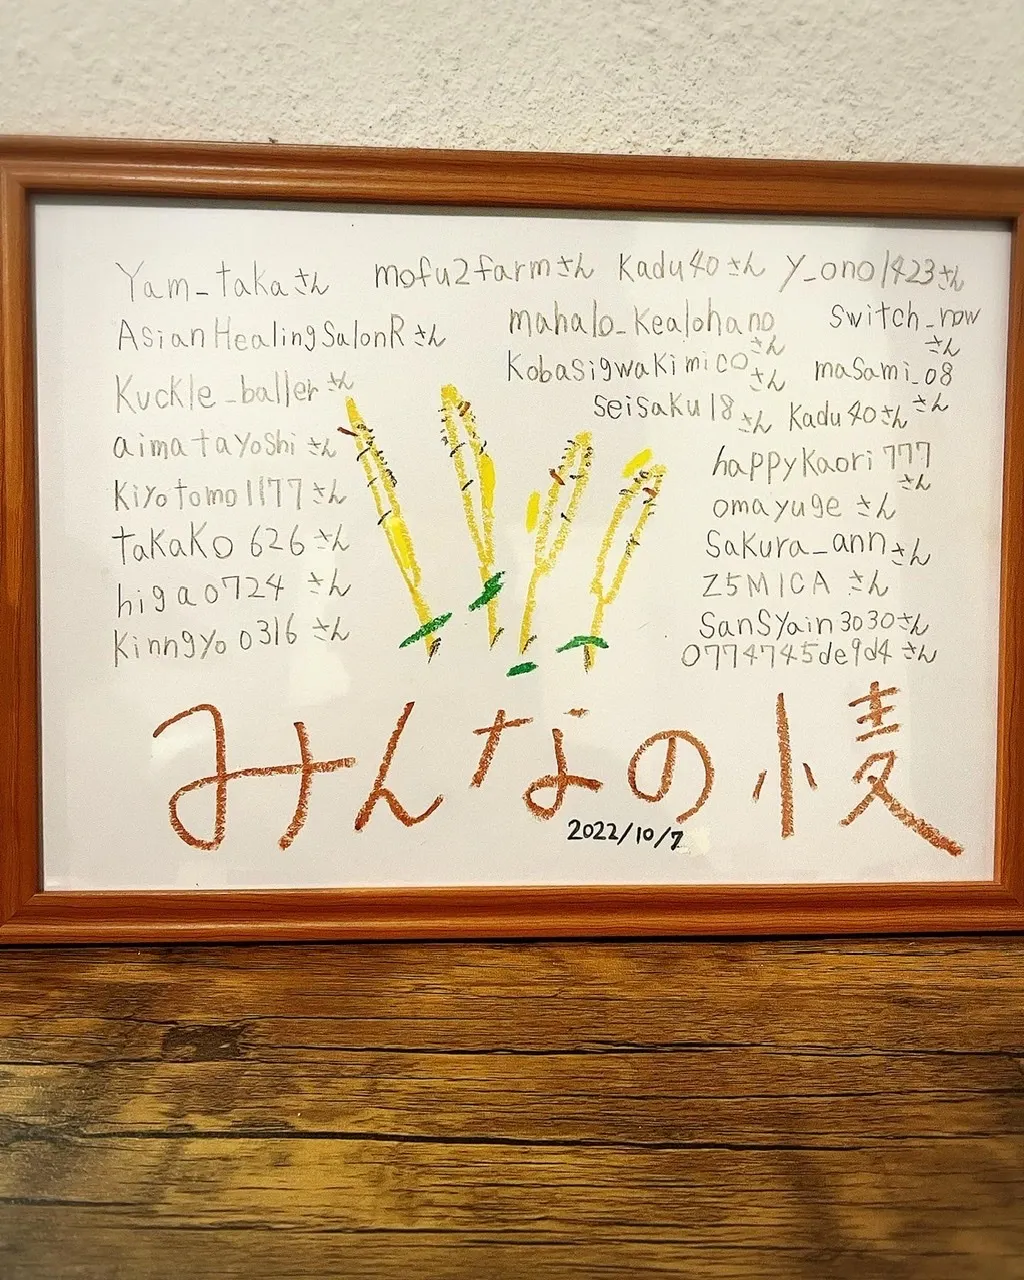 Yam_takaさん mofu2farmさん Kadu40さん y_ono1423さん
AsianHealingSalonRさん
mahalo_Kealohanoさん
switch_rowさん
KobasigwaKimicoさん
masami_08さん
Kuckle_ballerさん
seisaku18さん Kadu40さん
aimatayoshiさん
Kiyotomo1177さん
takako626さん
higa0724さん
Kinngyo0316さん
happyKaori777さん
omayugeさん
Sakura_annさん
Z5MICAさん
SanSyain3030さん
0774745de9d4さん
みんなの小麦
2022/10/7